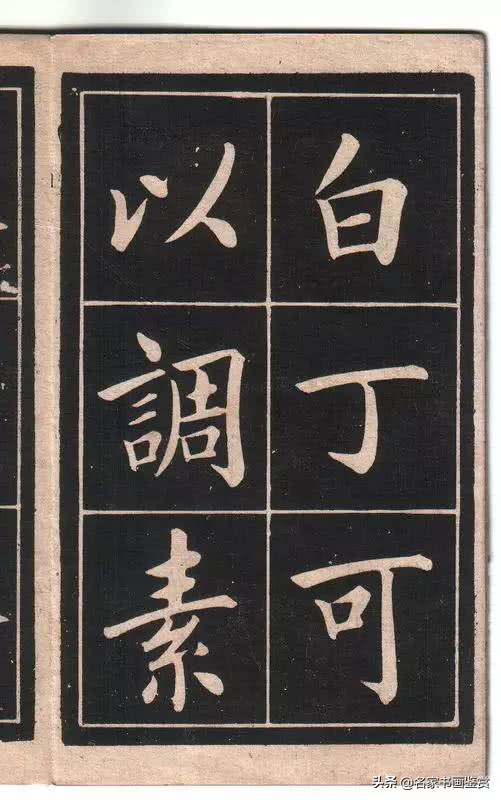 白丁可
以調素
头条 @名家书画鉴赏